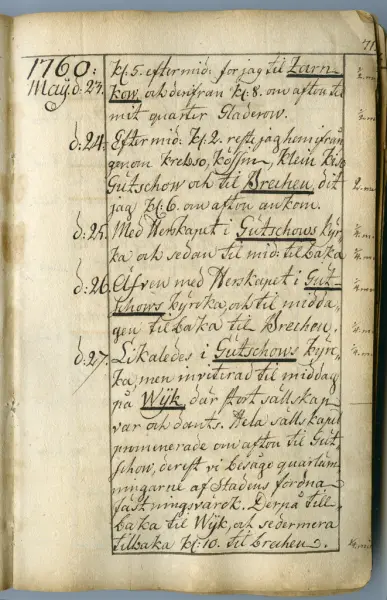 71.
1760:
Maÿ. d: 23. kl: 5. eftermid: for jag til Zarn-
kow, och derifrån kl: 8. om afton til
mit quarter Gladerow.
d: 24. Eftermid: kl: 2. reste jag hem ifrån
genom Krebso, klein
Gütschow och til Brechen, dit
jag kl: 6. om afton ankom.
d: 25. Med Herskapet i Gütschows kyr-
ka och sedan til mid: tilbaka
d: 26. Äfven med Herskapet i Güt-
schows kyrcka, och til midda-
gen tilbaka til Brechen.
d: 27. Likaledes i Gütschows kyr-
ka, men inviterad til middag
på Wÿk, där stort sällskap
var och dants. Hela sällskapet
promenerade om afton til Güt-
schow, derest vi besågo quartum-
ningarne af Stadens fordna
fästningsvärck. Derpå till-
baka til Wÿk, och sedermera
tillbaka kl: 10. til Brechen.